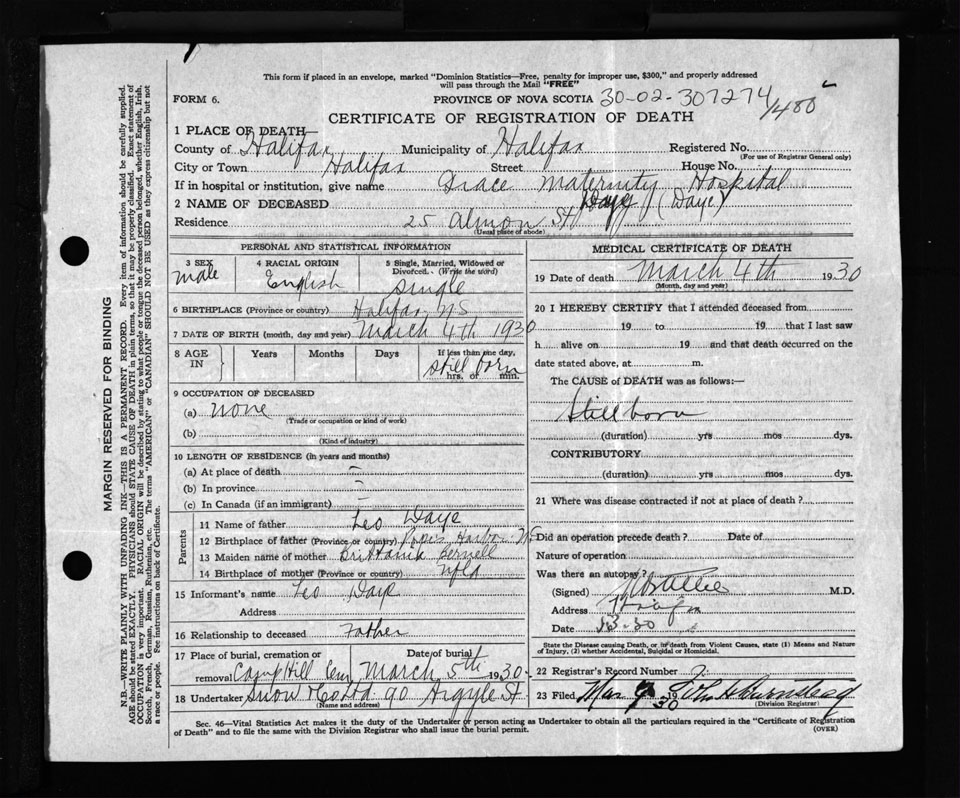 This form if placed in an envelope, marked "Dominion Statistics—Free, penalty for improper use, $300," and properly addressed
will pass through the Mail "FREE"
FORM 6.
PROVINCE OF NOVA SCOTIA 30-02-307274/480
CERTIFICATE OF REGISTRATION OF DEATH
1 PLACE OF DEATH
County of Halifax Municipality of Halifax Registered No.
(For use of Registrar General only)
City or Town Halifax Street House No.
If in hospital or institution, give name Grace Maternity Hospital
2 NAME OF DECEASED (Daye)
Residence 25 Almon St
(Usual place of abode)
PERSONAL AND STATISTICAL INFORMATION
3 SEX male
4 RACIAL ORIGIN English
5 Single, Married, Widowed or Divorced. (Write the word) Single
6 BIRTHPLACE (Province or country) Halifax, NS
7 DATE OF BIRTH (month, day and year) March 4th 1930
8 AGE IN Years Months Days If less than one day, hrs. or min. Still born
9 OCCUPATION OF DECEASED
(a) none
(Trade or occupation or kind of work)
(b)
(Kind of industry)
10 LENGTH OF RESIDENCE (in years and months)
(a) At place of death —
(b) In province —
(c) In Canada (if an immigrant) —
Parents
11 Name of father Leo Daye
12 Birthplace of father (Province or country) Popes Harbor NS
13 Maiden name of mother
14 Birthplace of mother (Province or country) Nfld
15 Informant's name Leo Daye
Address
16 Relationship to deceased Father
17 Place of burial, cremation or removal Camp Hill Cem Date of burial March 5th 1930
18 Undertaker Snow & Co Ltd 90 Argyle St
(Name and address)
MEDICAL CERTIFICATE OF DEATH
19 Date of death March 4th 1930
(Month, day and year)
20 I HEREBY CERTIFY that I attended deceased from
19 to 19 that I last saw
h alive on 19 and that death occurred on the
date stated above, at m.
The CAUSE of DEATH was as follows:—
Stillborn
(duration) yrs mos dys.
CONTRIBUTORY
(duration) yrs mos dys.
21 Where was disease contracted if not at place of death?
Did an operation precede death? Date of
Nature of operation
Was there an autopsy?
(Signed) M.D.
Address Halifax
Date
State the Disease causing Death, or in death from Violent Causes, state (1) Means and Nature
of Injury, (2) whether Accidental, Suicidal or Homicidal.
22 Registrar's Record Number
23 Filed Mar 30
(Division Registrar)
Sec. 46—Vital Statistics Act makes it the duty of the Undertaker or person acting as Undertaker to obtain all the particulars required in the "Certificate of Registration
of Death" and to file the same with the Division Registrar who shall issue the burial permit.
(OVER)
MARGIN RESERVED FOR BINDING
N.B.—WRITE PLAINLY WITH UNFADING INK—THIS IS A PERMANENT RECORD. Every item of information should be carefully supplied.
AGE should be stated EXACTLY. PHYSICIANS should STATE CAUSE OF DEATH in plain terms, so that it may be properly classified. Exact statement of
OCCUPATION is very important. RACIAL ORIGIN will be described by stating to what people or tongue the deceased person belonged, whether English, Irish,
Scotch, French, German, Russian, Ruthenian, etc. The terms "AMERICAN" or "CANADIAN" SHOULD NOT BE USED as they express citizenship but not
a race or people. See instructions on back of Certificate.